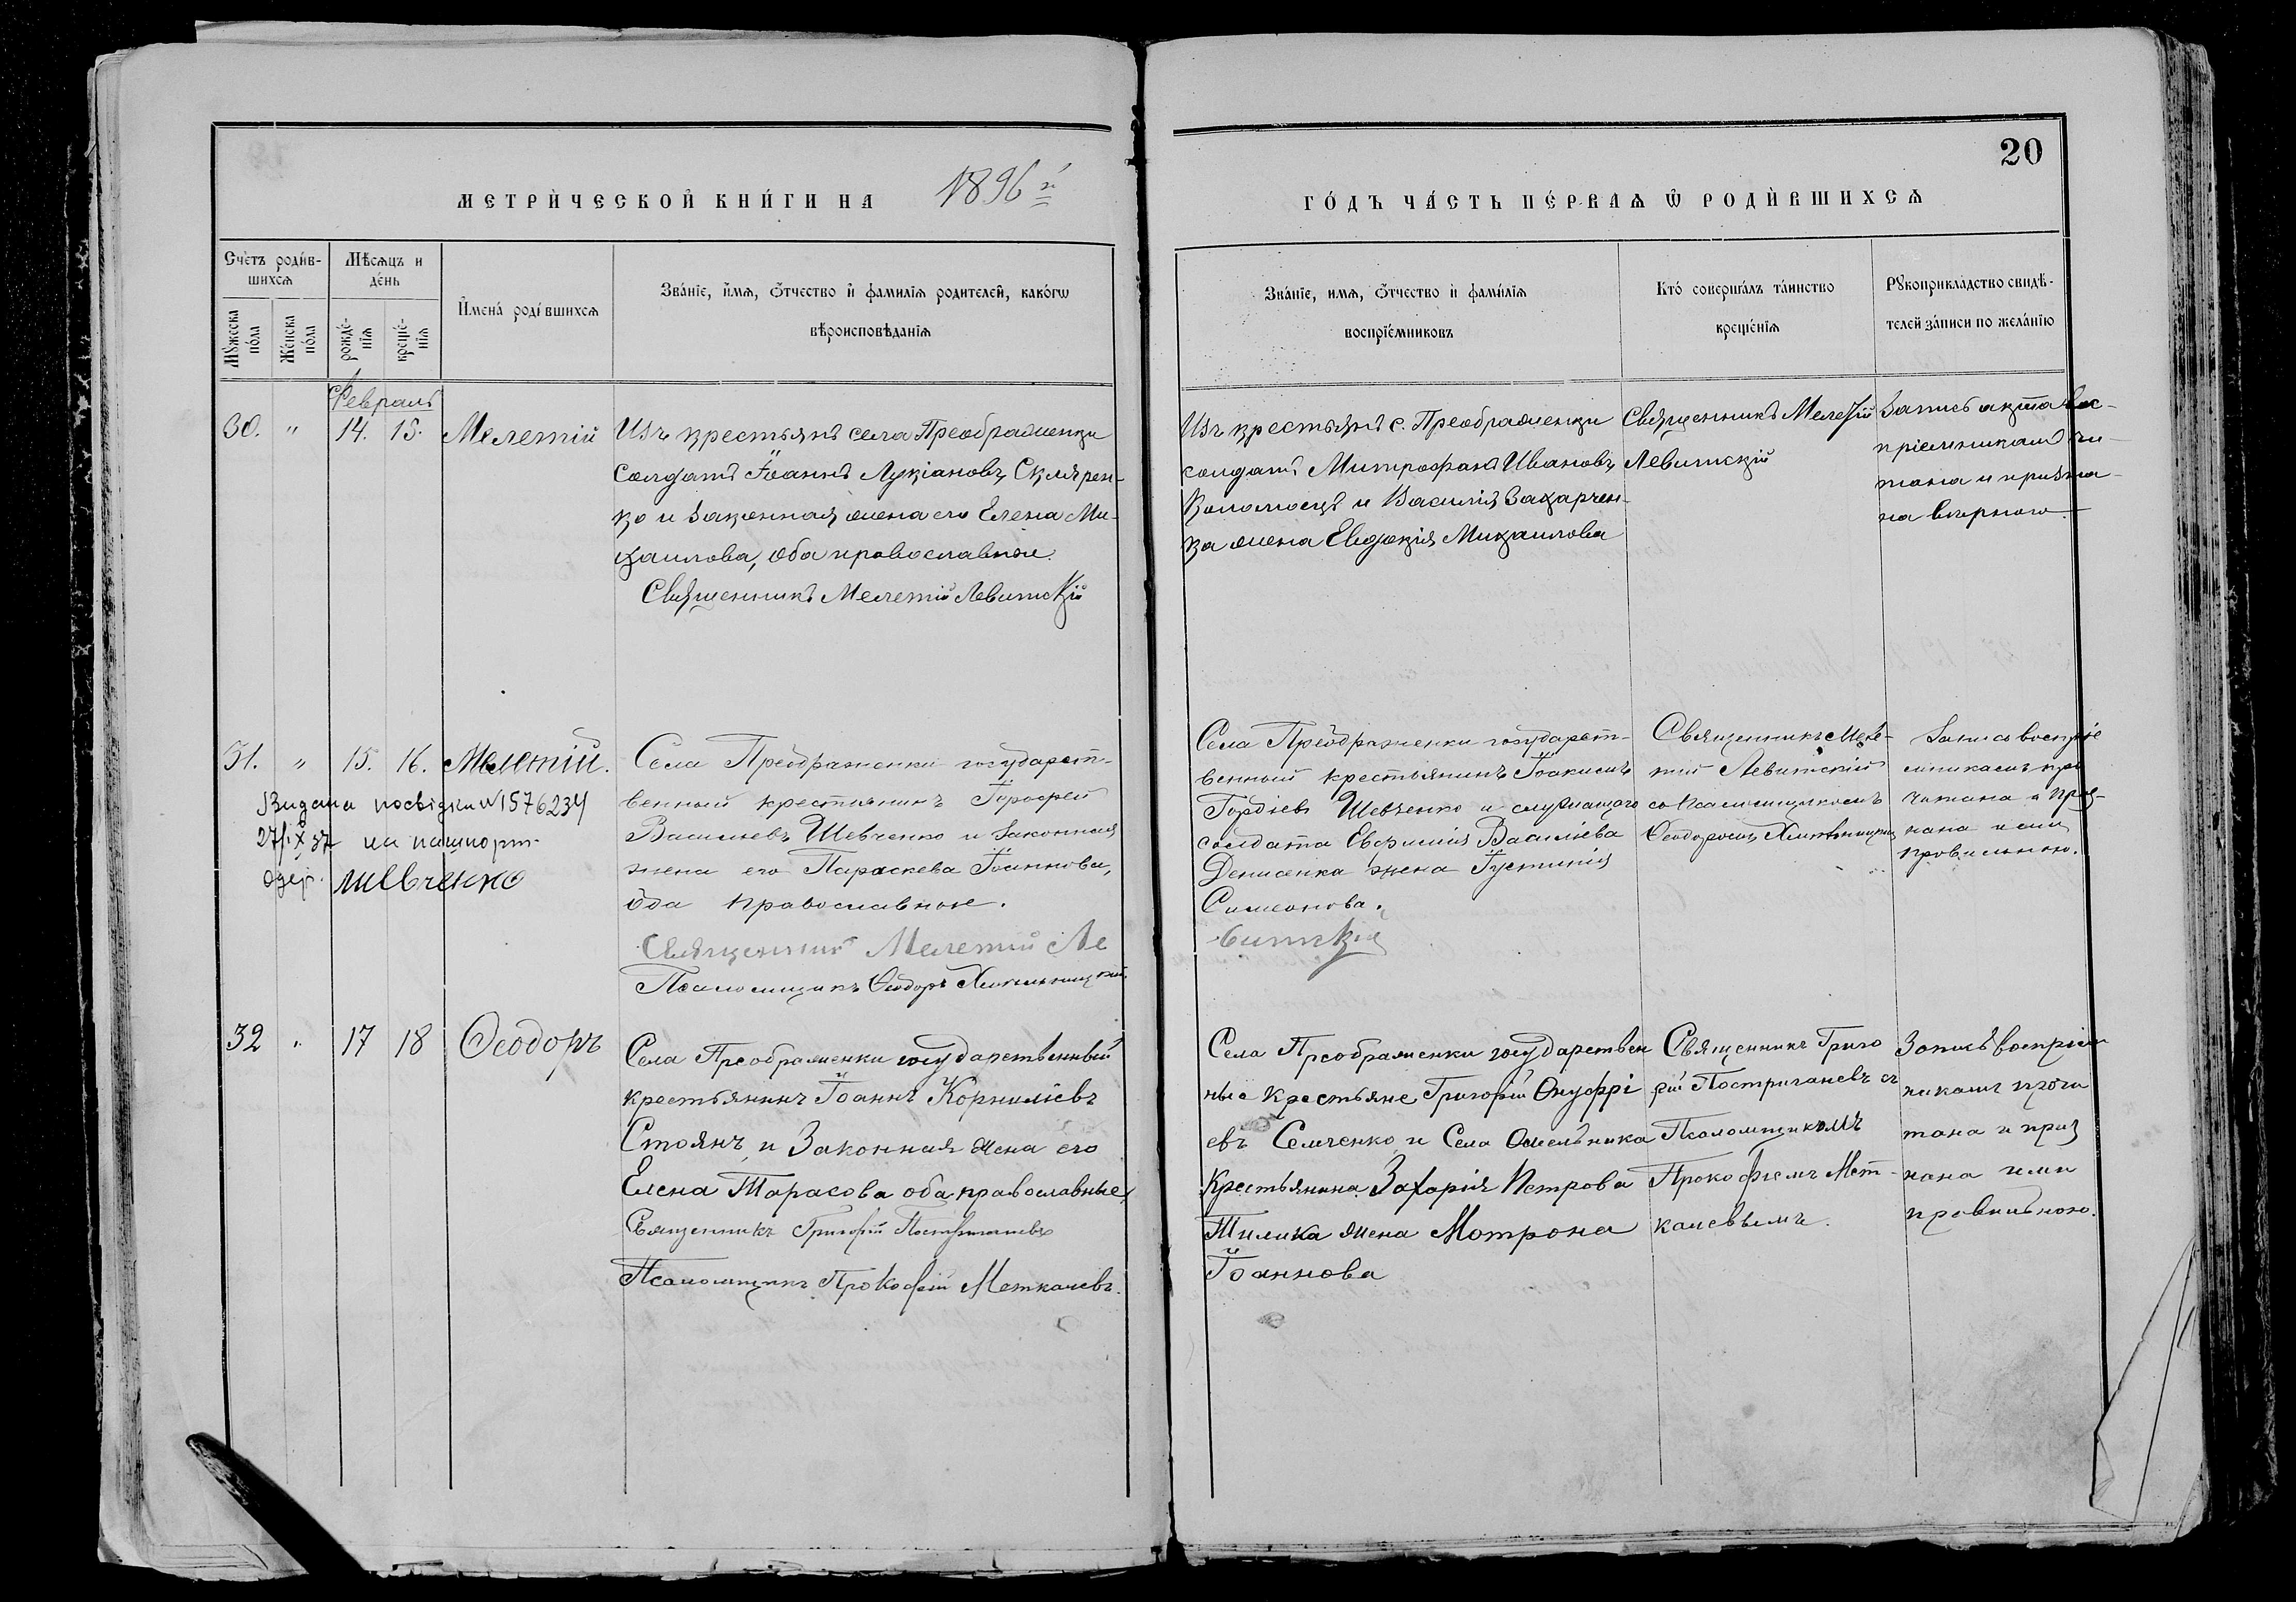 20
МЕТРИ́ЧЕСКОЙ КНИ́ГИ НА 1896 й
ГО́ДЪ ЧА́СТЬ ПЕ́РВАѦ Ѡ҆ РОДИ́ВШИХСѦ
Сче́тъ роди́в-
шихсѧ
Мꙋ́жеска
по́ла
Же́нска
по́ла
Мѣ́сѧцъ и
де́нь
рожде́-
нїѧ
креще́-
нїѧ
И҆мена́ роди́вшихсѧ
Зва́нїе, и҆́мѧ, ѻ҆́тчество и҆ фами́лїѧ родителей, како́гѡ
вѣроисповѣ́данїѧ
Зва́нїе, имѧ, ѻ҆́тчество и҆ фами́лїѧ
воспрїе́мниковъ
Кто́ соверша́лъ та́инство
креще́нїѧ
Рꙋкоприкла́дство свидѣ́-
телей за́писи по жела́нїю
Февраль
30. " 14. 15. Мелетій
Изъ крестьянъ села Преображенки
солдатъ Іоаннъ Лукіановъ Склярен-
ко и законная жена его Елена Ми-
хаилова, оба православные.
Священникъ Мелетій Левитскій
Изъ крестьянъ с. Преображенки
солдатъ Митрофанъ Ивановъ
и Василія Захарчен-
ка жена Евдокія Михаилова
Священникъ Мелетій
Левитскій
Запись акта вос-
пріемникамъ чи-
тана и призна-
на верною
31. " 15. 16. Мелетій.
Видана посвідка № 1576234
27/IX 37 на пашпорт.
одер. Шевченко
Села Преображенки государст-
венный крестьянинъ Іерофей
Васильевъ Шевченко и законная
жена его Параскева Іоаннова,
оба православные.
Священникъ Мелетій Ле
витскій
Псаломщикъ Ѳеодоръ Хмельницкій.
Села Преображенки государст-
венный крестьянинъ Іоакимъ
Гордіевъ Шевченко и служащаго
солдата Евфимія Василіева
Денисенка жена Іустинія
Симеонова.
Священникъ Меле-
тій Левитскій
со псаломщикомъ
Ѳеодоромъ Хмельницкимъ
Запись воспріе
мникамъ про
читана и приз-
нана ими
правильною.
32 " 17 18 Ѳеодоръ
Села Преображенки государственный
крестьянинъ Іоаннъ Корниліевъ
Стоянъ и Законная жена его
Елена Тарасова оба православные
Священникъ Григорій Постригачевъ
Псаломщикъ Прокофій Меткалевъ.
Села Преображенки государствен
ные крестьяне Григорій Онуфрі
евъ Семченко и Села Омельника
Крестьянина Захарія Петрова
Тилика жена Мотрона
Іоаннова
Священникъ Григо
рій Постригачевъ съ
Псаломщикомъ
Прокофіемъ Мет-
калевымъ.
Запись воспріем
никамъ прочи
тана и приз
нана ими
правильною.